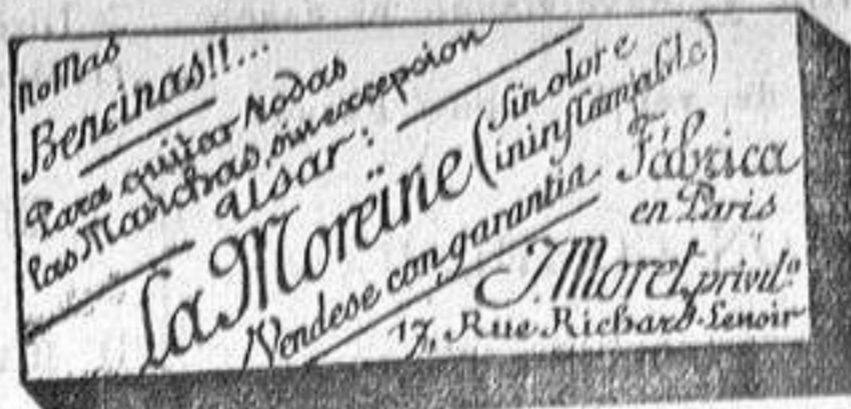 no mas
Bencinas!!...
Para quitar todas
las Manchas, sin excepsion
usar:
La Moreïne (sin olor e
ininflamable)
Vendese con garantia
Fábrica
en Paris
J. Morel, privil.º
17, Rue Richard-Lenoir